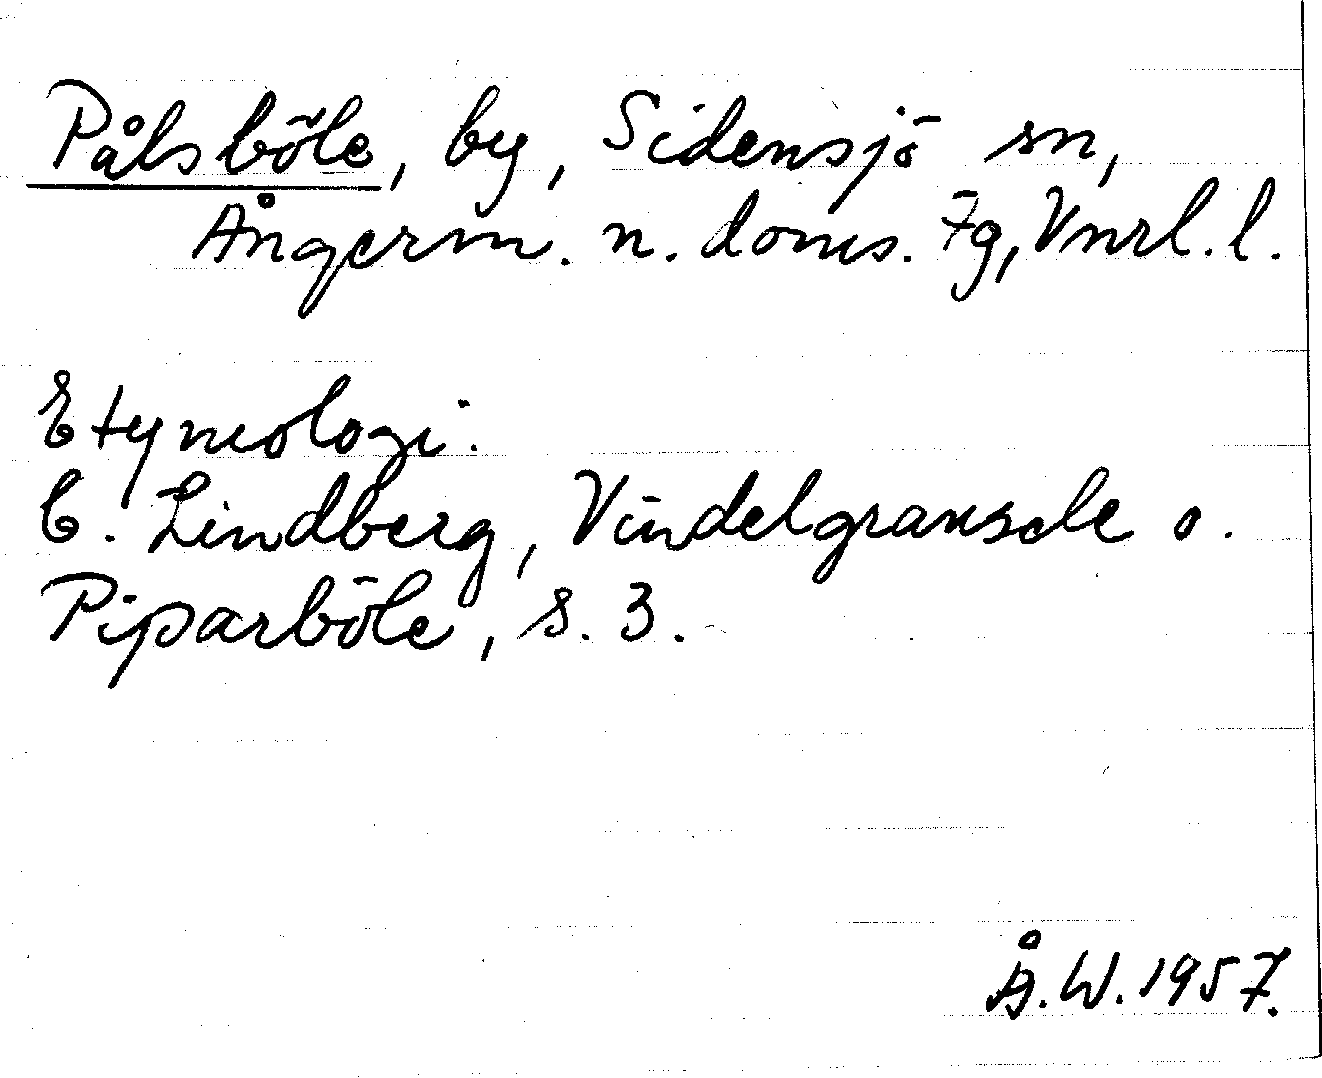 Pålsböle, by, Sidensjö sn,
Ångerm. n. doms. Fg, Vnrl. l.
Etymologi.
C. Lindberg, Vindelgransele o.
Piparböle, s. 3.
Å.W. 1957.